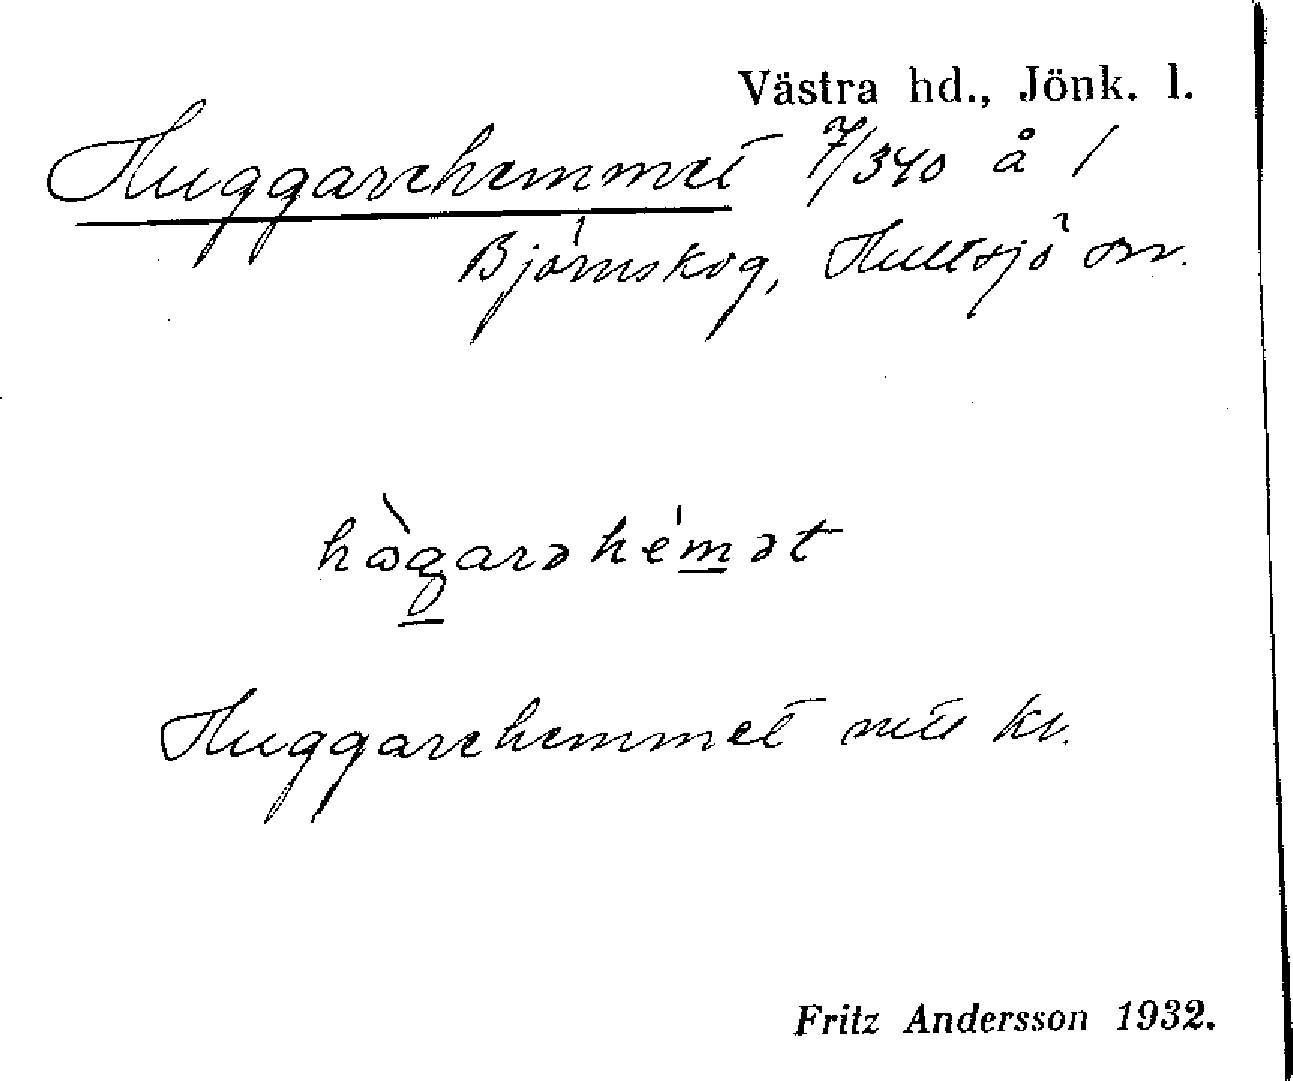 Västra hd., Jönk. l.
Huggarehemmet 7/340 å 1
Björnskog, Hultsjö sn.
hògarəhémət
Huggarehemmet mtl kr.
Fritz Andersson 1932.